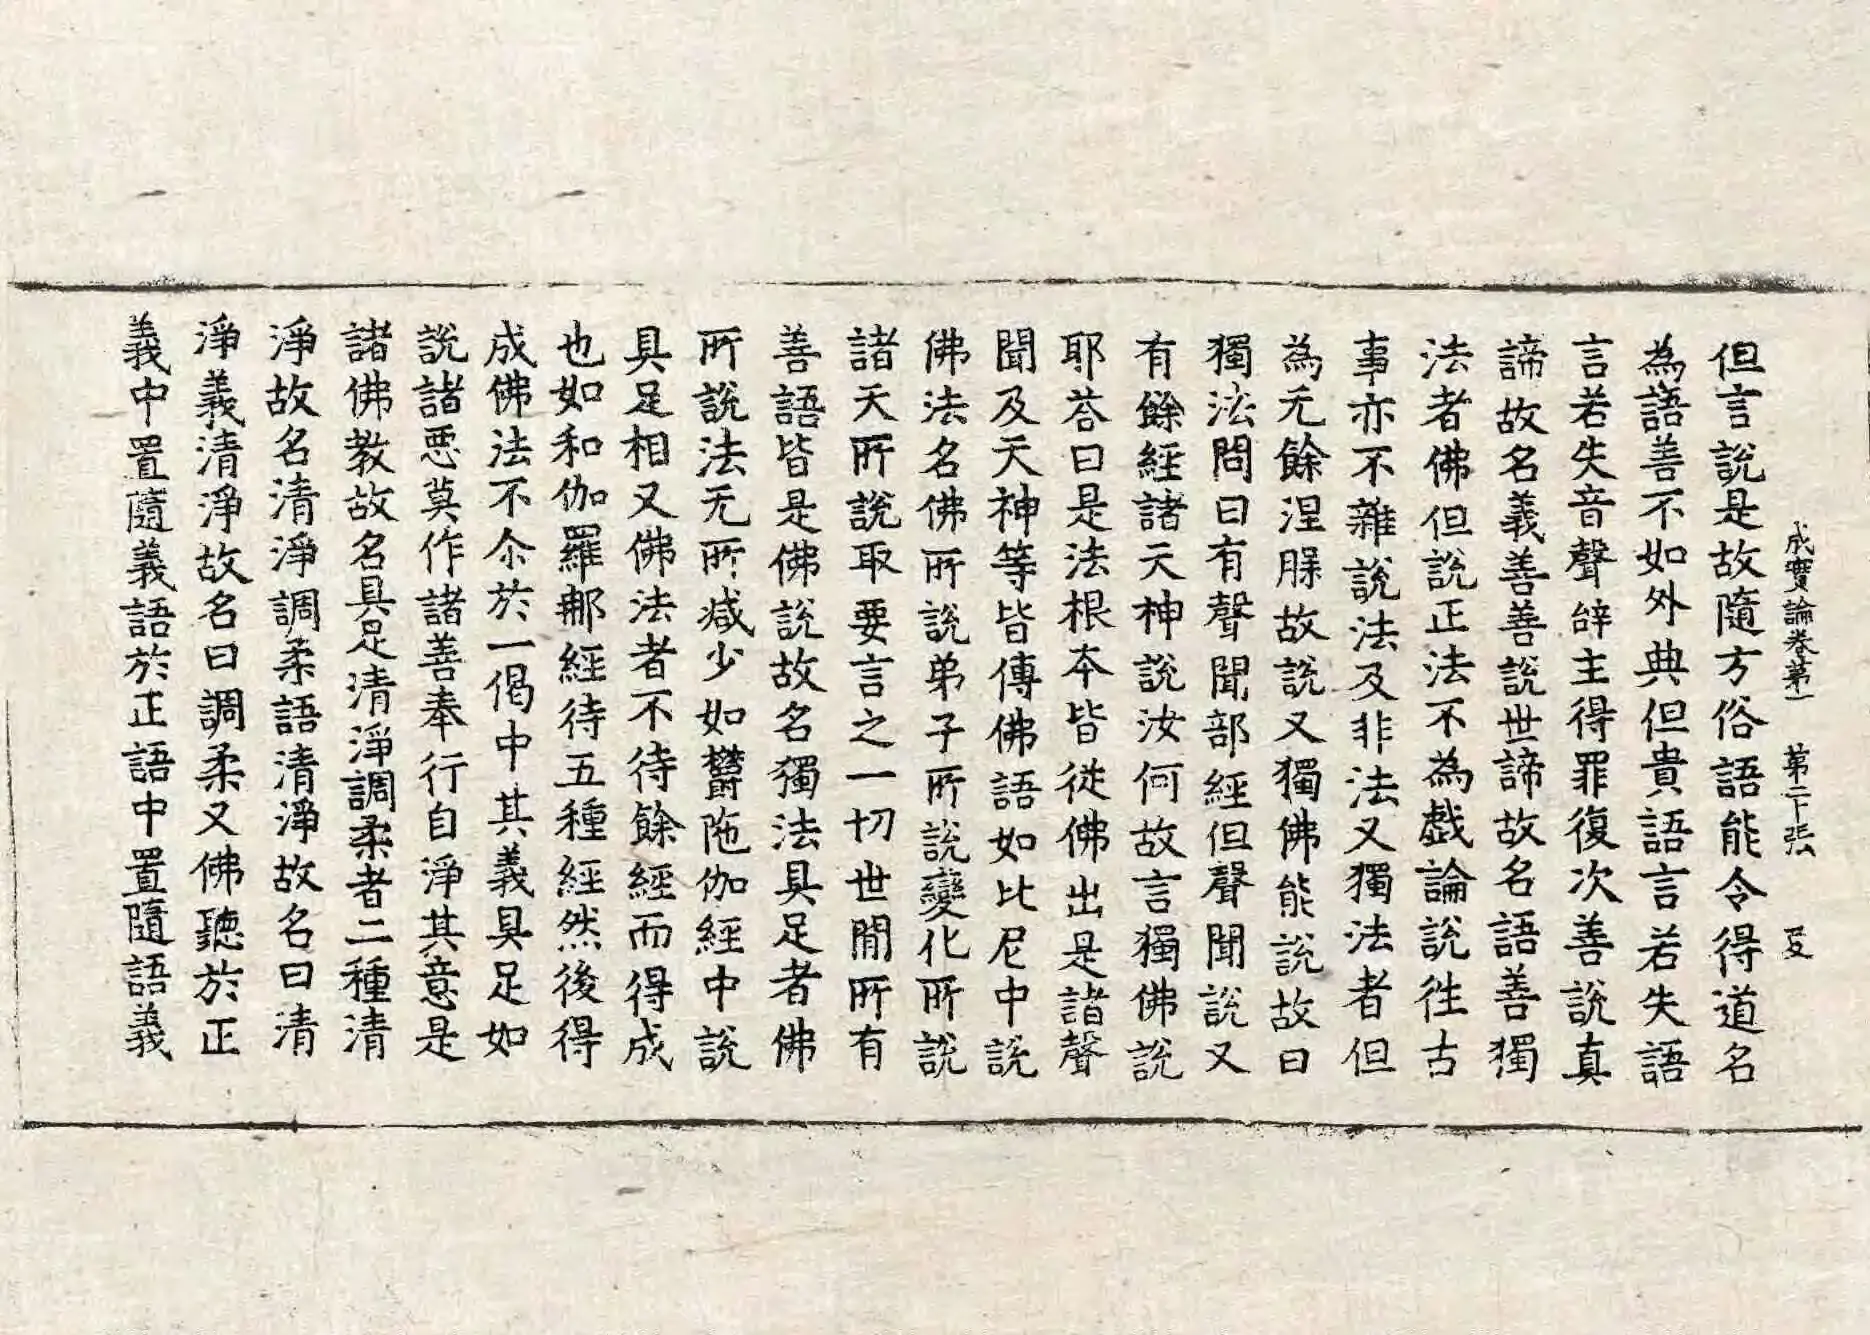 成實論卷第一 第二十張 友
但言說是故隨方俗語能令得道名
為語善不如外典但貴語言若失語
言若失音聲辝主得罪復次善說真
諦故名義善善說世諦故名語善獨
法者佛但說正法不為戱論說徃古
事亦不雜說法及非法又獨法者但
為无餘涅脲故說又獨佛能說故曰
獨法問曰有聲聞部經但聲聞說又
有餘經諸天神說汝何故言獨佛說
耶荅曰是法根夲皆從佛出是諸聲
聞及天神等皆傳佛語如比尼中說
佛法名佛所說弟子所說變化所說
諸天所說取要言之一切世閒所有
善語皆是佛說故名獨法具足者佛
所說法无所减少如欝陁伽經中說
具足相又佛法者不待餘經而得成
也如和伽羅𨚗經待五種經然後得
成佛法不尒於一偈中其義具足如
說諸惡莫作諸善奉行自淨其意是
諸佛教故名具足清淨調柔者二種清
淨故名清淨調柔語清淨故名曰清
淨義清淨故名曰調柔又佛聽於正
義中置隨義語於正語中置隨語義